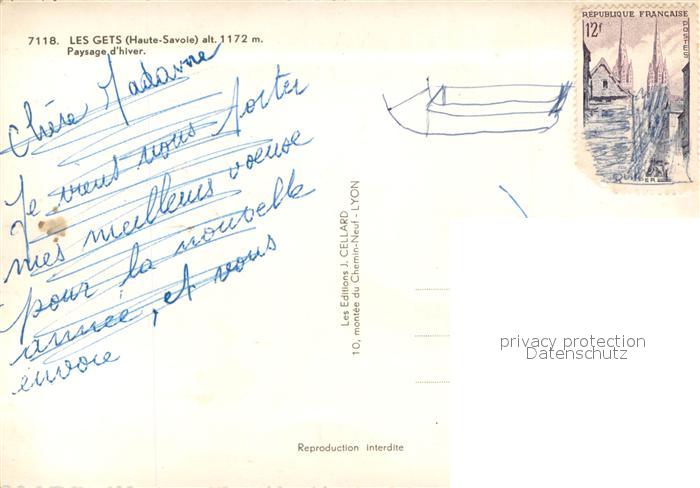 7118. LES GETS (Haute-Savoie) alt. 1172 m.
Paysage d'hiver.
RÉPUBLIQUE FRANÇAISE
12f
POSTES
QUIMPER
Chère Madame
Je vient vous
mes meilleurs voeux
pour la nouvelle
année, et vous
envoie
Les Editions J. CELLARD
10, montée du Chemin-Neuf - LYON
privacy protection
Datenschutz
Reproduction interdite